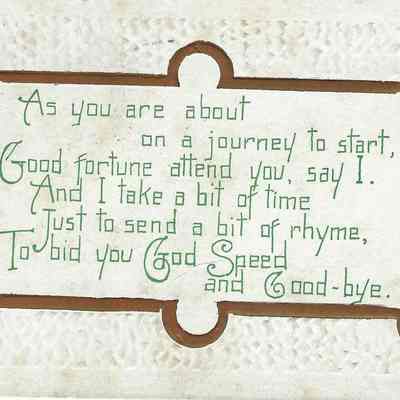 As you are about
on a journey to start,
Good fortune attend you, say I.
And I take a bit of time
Just to send a bit of rhyme,
To bid you God Speed
and Good-bye.